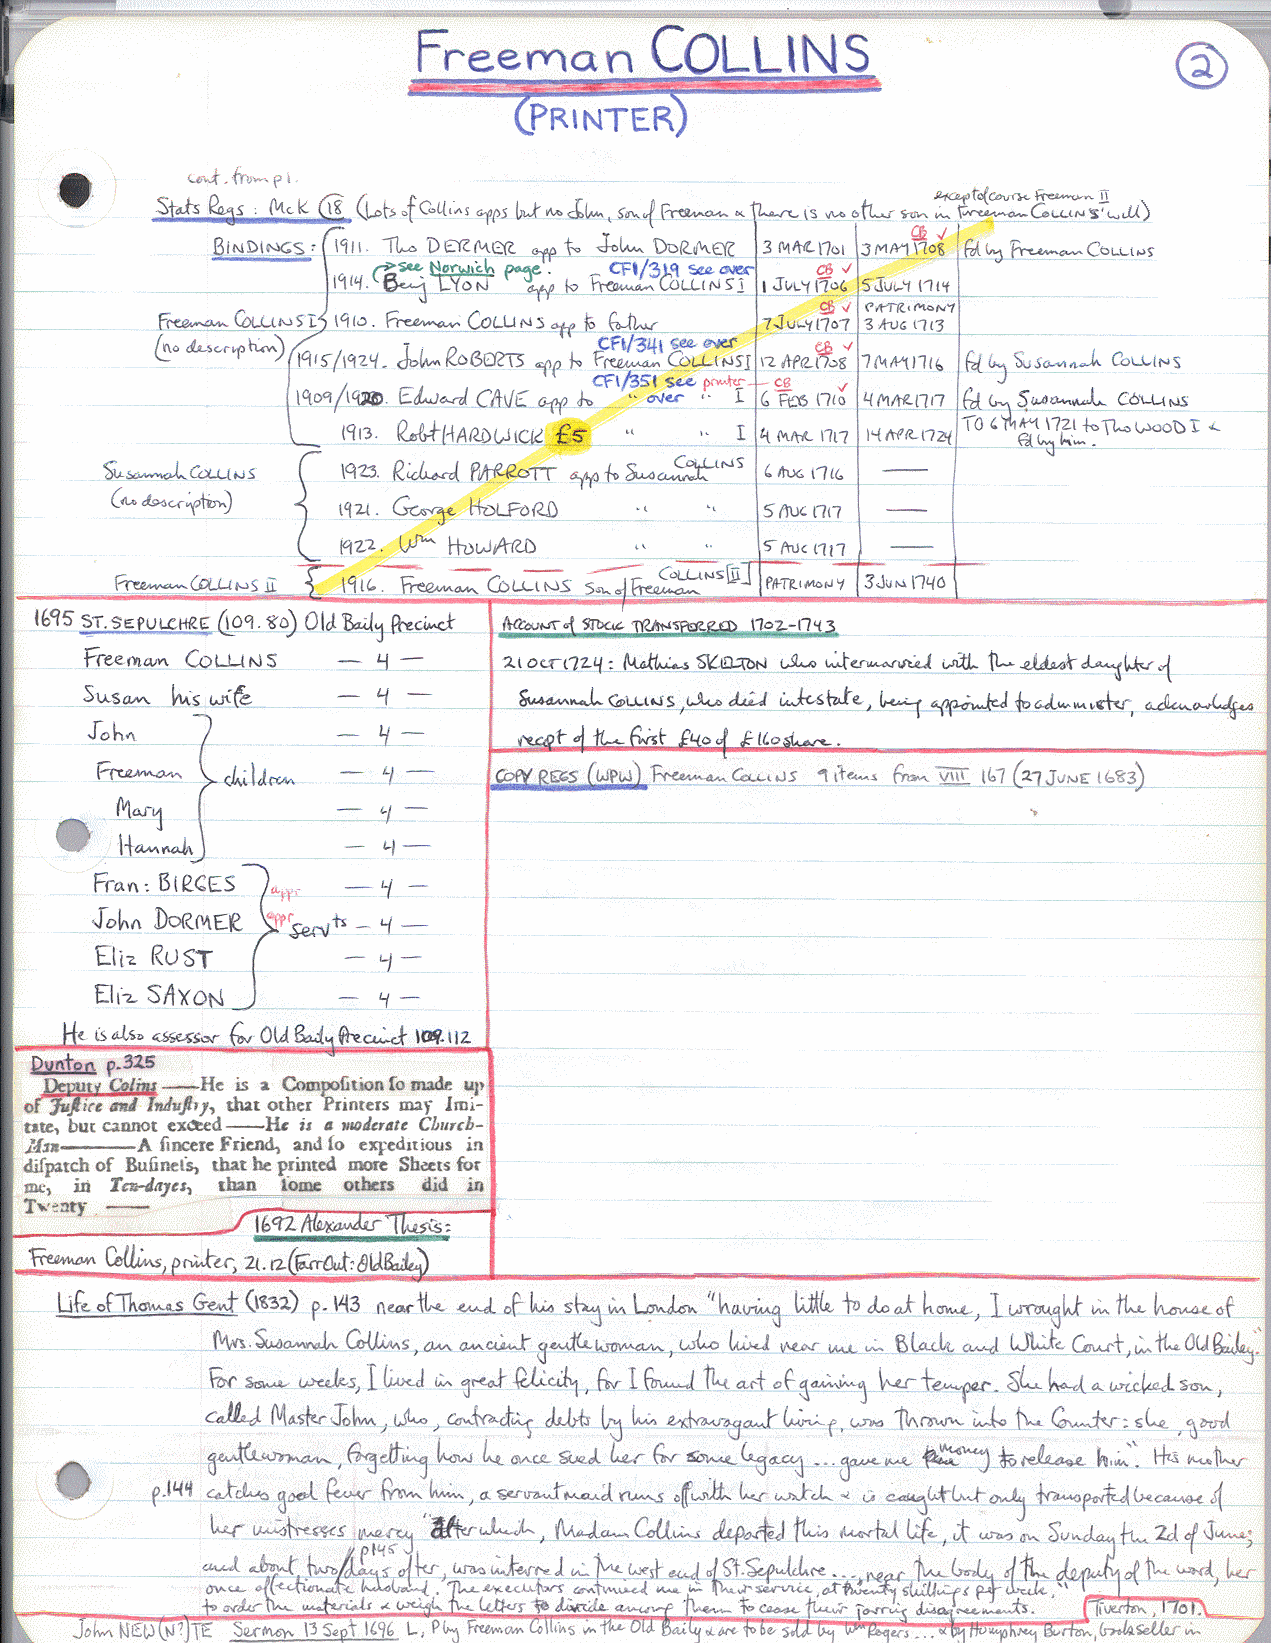 Freeman COLLINS
(PRINTER)
2
cont. from p1.
except of course Freeman II
Stats Regs: McK 18 (Lots of Collins apps but no John, son of Freeman & there is no other son in Freeman COLLINS' will)
BINDINGS: 1911. Tho DERMER app to John DORMER 3 MAR 1701 CB ✓ 3 MAY 1708 fd by Freeman COLLINS
see Norwich page. CF1/319 see over CB ✓
1914. Benj LYON app to Freeman COLLINS I 1 JULY 1706 5 JULY 1714
Freeman COLLINS I 1910. Freeman COLLINS app to father 7 JULY 1707 CB ✓ PATRIMONY 3 AUG 1713
(no description) CF1/341 see over CB ✓
1915/1924. John ROBERTS app to Freeman COLLINS I 12 APR 1708 7 MAY 1716 fd by Susannah COLLINS
CF1/351 see over printer — CB ✓
1909/1920. Edward CAVE app to " " I 6 FEB 1710 4 MAR 1717 fd by Susannah COLLINS
1913. Robt HARDWICK £5 " " I 4 MAR 1717 14 APR 1724 TO 6 MAY 1721 to Tho WOOD I & fd by him.
Susannah COLLINS 1923. Richard PARROTT app to Susannah COLLINS 6 AUG 1716 —
(no description) 1921. George HOLFORD " " 5 AUG 1717 —
1922. Wm HOWARD " " 5 AUG 1717 —
Freeman COLLINS II 1916. Freeman COLLINS son of Freeman COLLINS [II] PATRIMONY 3 JUN 1740
1695 ST. SEPULCHRE (109.80) Old Baily Precinct
Freeman COLLINS — 4 —
Susan his wife — 4 —
John — 4 —
Freeman children — 4 —
Mary — 4 —
Hannah — 4 —
Fran: BIRGES appr — 4 —
John DORMER appr servts — 4 —
Eliz RUST — 4 —
Eliz SAXON — 4 —
He is also assessor for Old Baily Precinct 109.112
ACCOUNT of STOCK TRANSFERRED 1702-1743
21 OCT 1724: Mathias SKELTON who intermarried with the eldest daughter of
Susannah COLLINS, who died intestate, being appointed to administer, acknowledges
recpt of the first £40 of £160 share.
COPY REGS (WPW) Freeman COLLINS 9 items from VIII 167 (27 JUNE 1683)
Dunton p.325
Deputy Colins——He is a Compoſition ſo made up
of Juſtice and Induſtry, that other Printers may Imi-
tate, but cannot exceed——He is a moderate Church-
Man————A ſincere Friend, and ſo expeditious in
diſpatch of Buſineſs, that he printed more Sheets for
me, in Ten-dayes, than ſome others did in
Twenty ——
1692 Alexander Thesis:
Freeman Collins, printer, 21.12 (Farr Out: Old Bailey)
Life of Thomas Gent (1832) p.143 near the end of his stay in London "having little to do at home, I wrought in the house of
Mrs. Susannah Collins, an ancient gentlewoman, who lived near me in Black and White Court, in the Old Bailey."
For some weeks, I lived in great felicity, for I found the art of gaining her temper. She had a wicked son,
called Master John, who, contracting debts by his extravagant living, was thrown into the Counter: she, good
gentlewoman, forgetting how he once sued her for some legacy ... gave me money to release him". His mother
p.144 catches gaol fever from him, a servant maid runs off with her watch & is caught but only transported because of
her mistresses mercy "After which, Madam Collins departed this mortal life, it was on Sunday the 2d of June;
and about two/p145 days after, was interred in the west end of St. Sepulchre ..., near the body of the deputy of the word, her
once affectionate husband. The executors continued me in their service, at twenty shillings per week,"
to order the materials & weigh the letters to divide among them to cease their jarring disagreements.
Tiverton, 1701.
John NEW(N?)TE Sermon 13 Sept 1696 L, P by Freeman Collins in the Old Baily & are to be sold by Wm Rogers ... & by Humphrey Burton, bookseller in